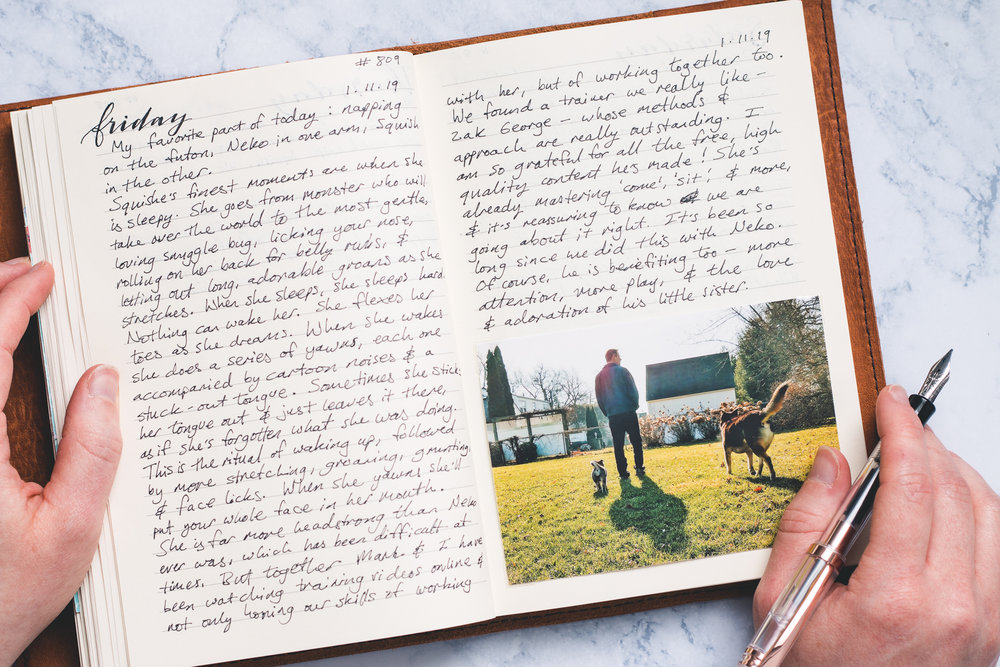 # 809
1.11.19
friday
My favorite part of today: napping
on the futon, Neko in one arm, Squish
in the other.
Squishe's finest moments are when she
is sleepy. She goes from monster who will
take over the world to the most gentle,
loving snuggle bug, licking your nose,
rolling on her back for belly rubs, &
letting out long, adorable groans as she
stretches. When she sleeps, she sleeps hard.
Nothing can wake her. She flexes her
toes as she dreams. When she wakes
she does a series of yawns, each one
accompanied by cartoon noises & a
stuck-out tongue. Sometimes she sticks
her tongue out & just leaves it there,
as if she's forgotten what she was doing.
This is the ritual of waking up, followed
by more stretching, groaning, grunting,
& face licks. When she yawns she'll
put your whole face in her mouth.
She is far more headstrong than Neko
ever was, which has been difficult at
times. But together Mark & I have
been watching training videos online &
not only honing our skills of working
1.11.19
with her, but of working together too.
We found a trainer we really like -
Zak George - whose methods &
approach are really outstanding. I
am so grateful for all the free, high
quality content he's made! She's
already mastering 'come', 'sit', & more,
& it's reassuring to know we are
going about it right. It's been so
long since we did this with Neko.
Of course, he is benefiting too - more
attention, more play, & the love
& adoration of his little sister.